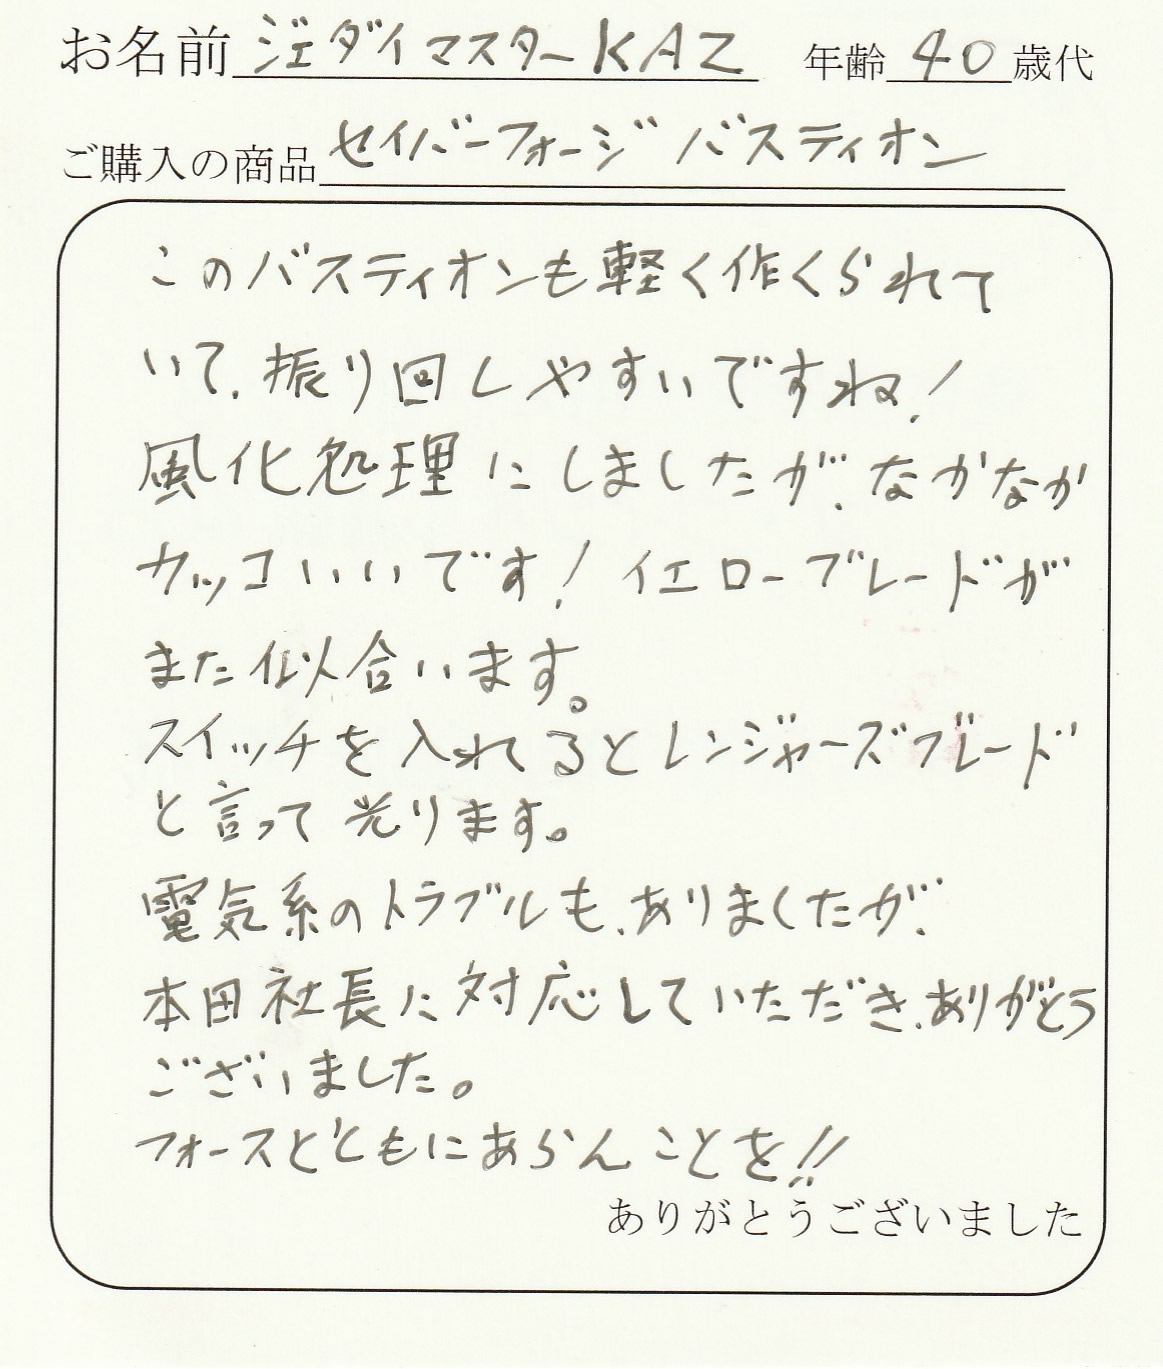 お名前 ジェダイマスターKAZ 年齢 40 歳代
ご購入の商品 セイバーフォージ バスティオン
このバスティオンも軽く作くられて
いて、振り回しやすいですね!
風化処理にしましたが、なかなか
カッコいいです!イエローブレードが
また似合います。
スイッチを入れるとレンジャーズブレード
と言って光ります。
電気系のトラブルも、ありましたが、
本田社長に対応していただき、ありがとう
ございました。
フォースとともにあらんことを!!
ありがとうございました